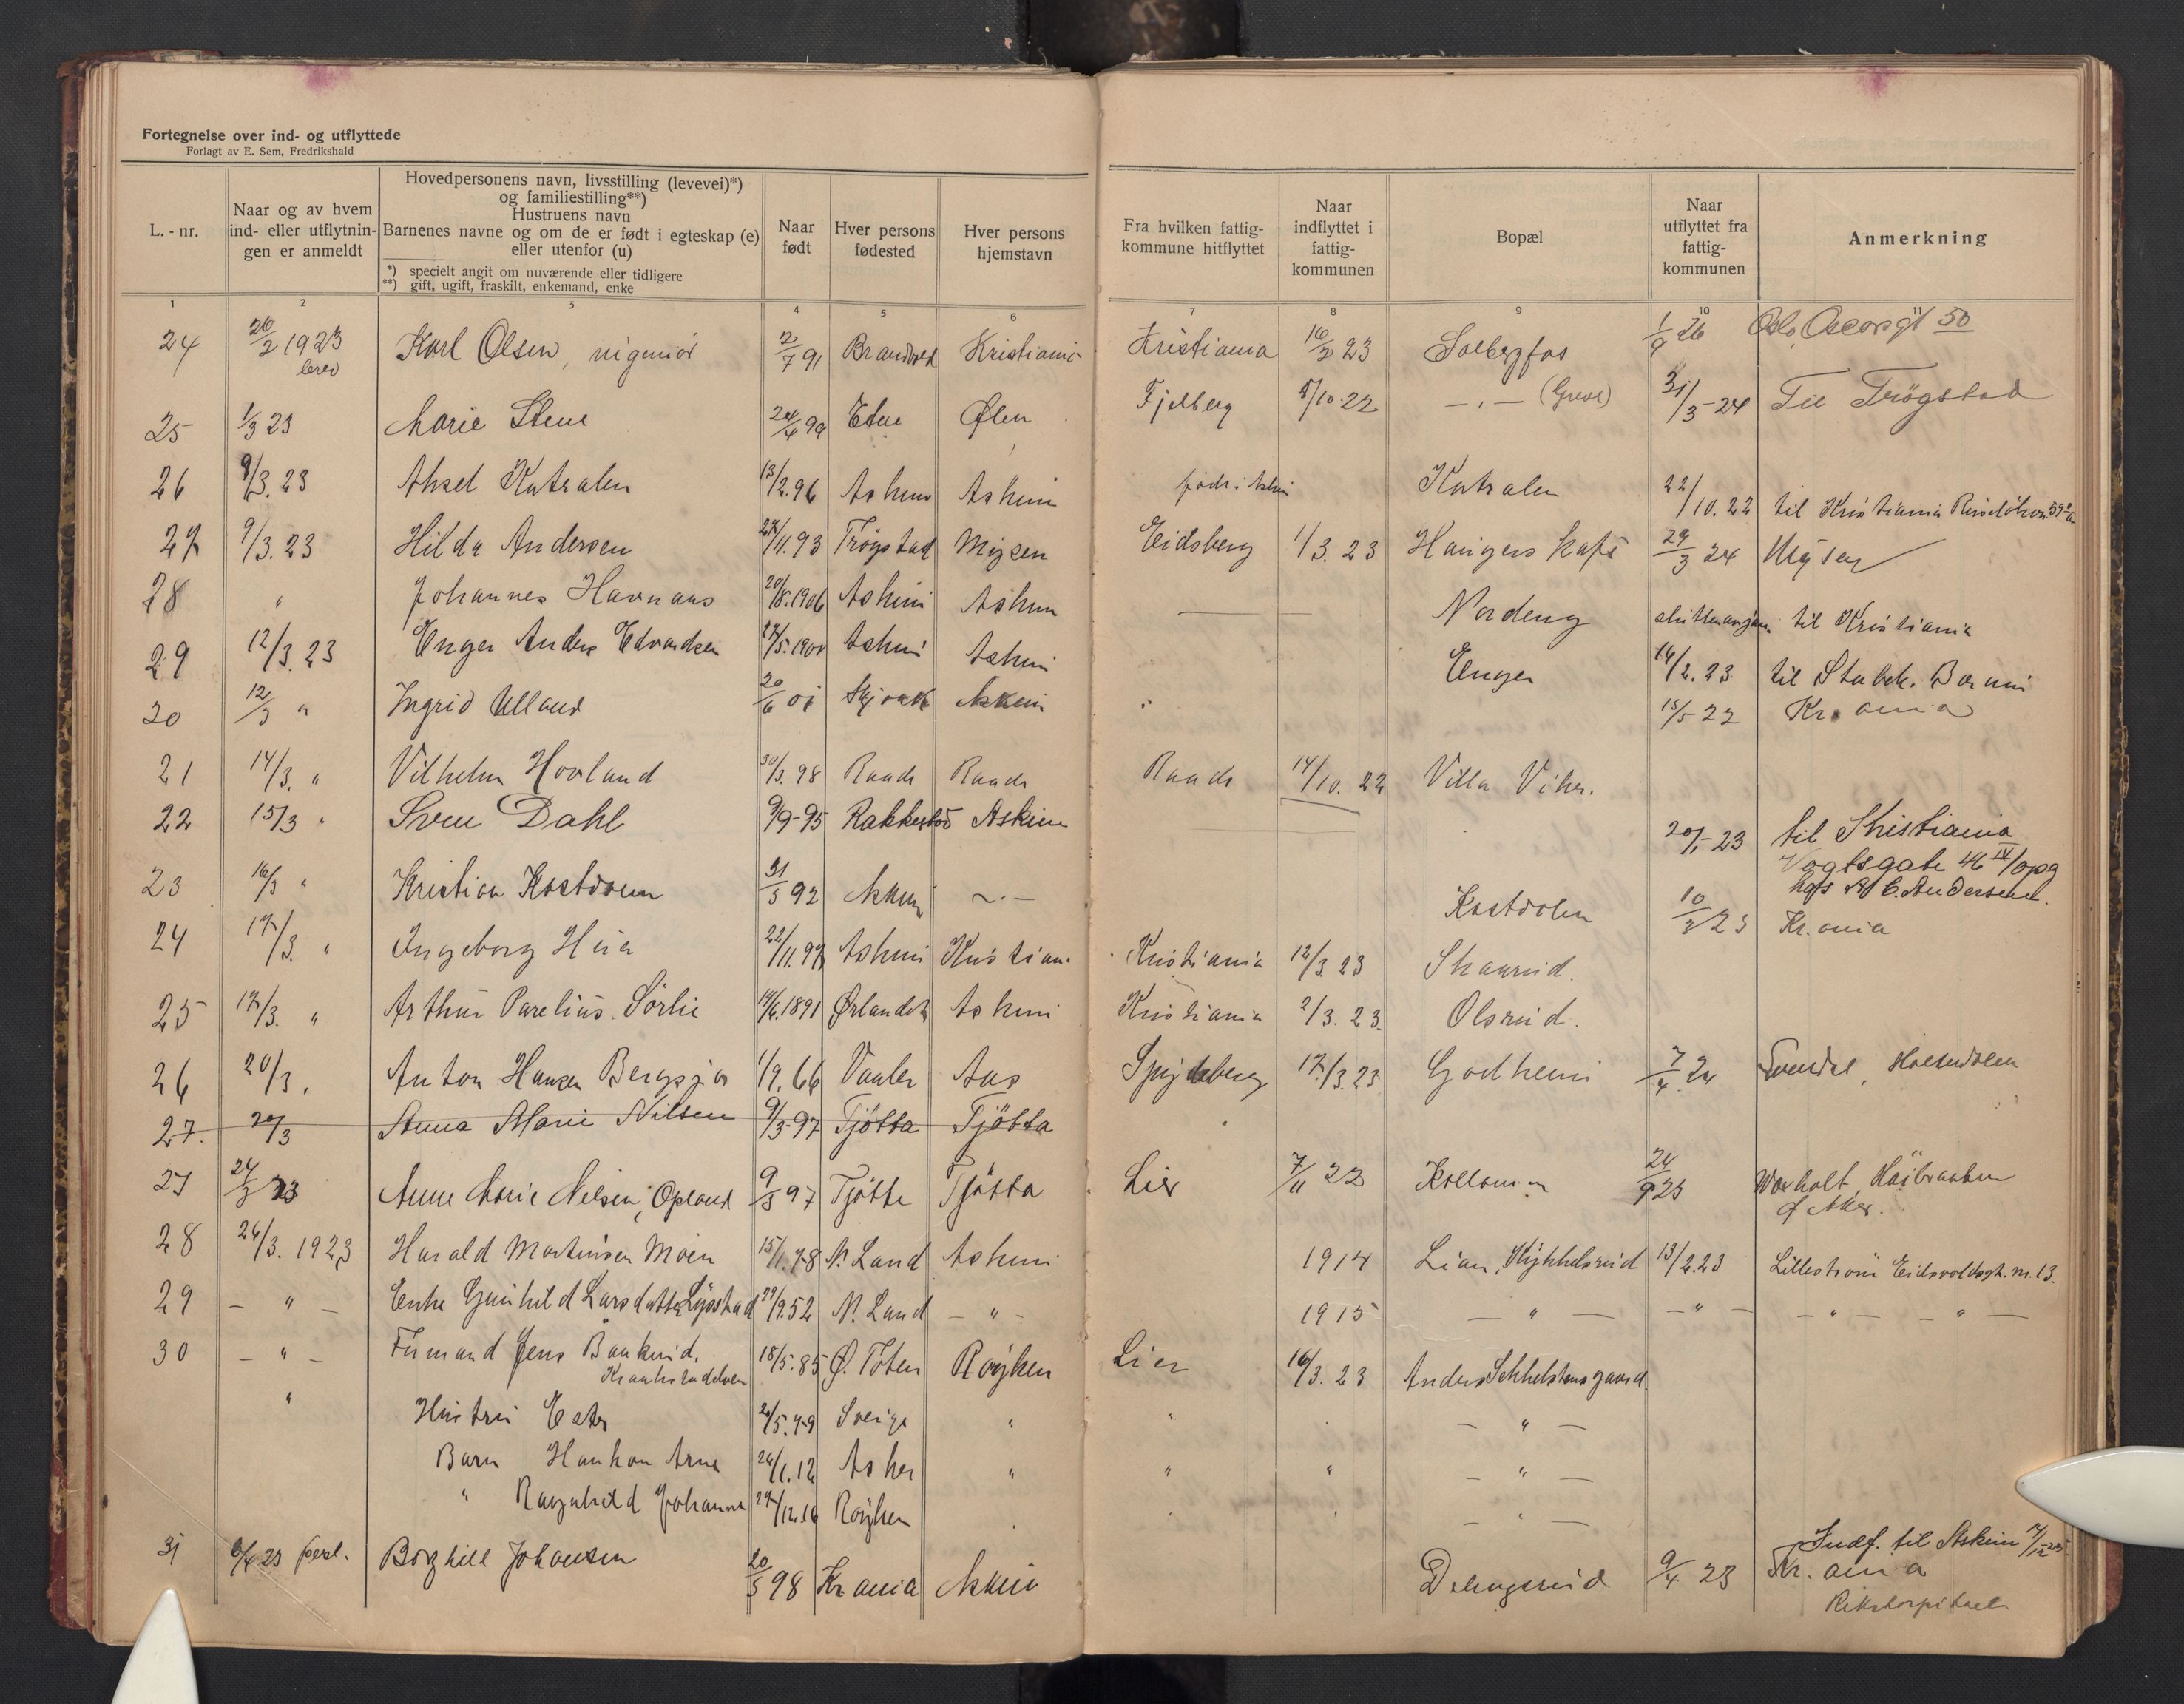 Fortegnelse over ind- og utflyttede
Forlagt av E. Sem, Fredrikshald
L.-nr.
Naar og av hvem ind- eller utflytningen er anmeldt
Hovedpersonens navn, livsstilling (levevei)*)
og familiestilling**)
Hustruens navn
Barnenes navne og om de er født i egteskap (e)
eller utenfor (u)
*) specielt angit om nuværende eller tidligere
**) gift, ugift, fraskilt, enkemand, enke
Naar født
Hver persons fødested
Hver persons hjemstavn
Fra hvilken fattigkommune hitflyttet
Naar indflyttet i fattigkommunen
Bopæl
Naar utflyttet fra fattigkommunen
Anmerkning
1 2 3 4 5 6 7 8 9 10
24 26/2 1923 Karl Olsen, 2/7 91 Kristiania Kristiania 16/2 23 Solbergfos 1/9 26 Oslo, Oscarsgt 50
25 1/3 23 Marie Stene 24/4 99 Etne Ølen Fjelberg 5/10-22 —„— 31/3-24 Til Trøgstad
26 9/3.23 Aksel Katralen 13/2.96 Askim Askim født i Askim Katralen 22/10.22 til Kristiania
27 9/3.23 Hilda Andersen 27/11.93 Trøgstad Mysen Eidsberg 1/3.23 Haugers Kafe 29/3 24 Mysen
28 " Johannes Havnaas 20/8.1906 Askim Askim — Nordeng til Kristiania
29 12/3.23 Enger Anders Edvardsen 27/5.1901 Askim Askim Enger 14/2.23 til Stabek. Bærum
20 12/3 " Ingrid Ulland 20/6 01 Askim " 15/5-22 Kr.ania
21 14/3. " Vilhelm Hovland 30/3.98 Raade Raade Raade 14/10.22 Villa
22 15/3 " Sven Dahl 9/9-95 Rakkestad Askim 20/1-23 til Kristiania
Vogtsgate 46 IV/opg
23 16/3 " Kristian Kostdalen 31/5 92 Askim —„— Kostdolen 10/3 23 Kr.ania
24 17/3. " Ingeborg 22/11.97 Askim Kristian. Kristiania 12/3 23 Skaarud.
25 17/3. " Arthur Parelius Sørlie 14/6.1891 Askim Kristiania 2/3.23. Olsrud.
26 20/3. Anton Hansen Bergsjø 1/9.66 Vaaler Aas Spydeberg 17/3.23 Godheim 7/4 24
27. 20/3 Anna Marie Nilsen 9/3-97 Tjøtta Tjøtta
27 24/3 23 Anne Marie Nilsen, Opland 9/3 97 Tjøtta Tjøtta Lier 7/11 22 24/9 23
Aker.
28 24/3. 1923 Harald Martinsen Moen 15/1.78 N. Land Askim 1914 Lian, Kykkelsrud 13/2.23 Lillestrøm Eidsvoldsgt. nr. 13.
29 — " — Enke Gunhild Larsdatter 29/9.52 N. Land — " — 1915 — " — — " — — " — — " —
30 — " — Jens 18/5.85 Ø. Toten Røyken Lier 16/3.23 Anders
" Hustru Ester 2/5.79 Sverige " " — " —
Barn Haakon Arne 24/1.12 Asker " " " — " —
" Ragnhild Johanne 29/12.16 Røyken — " —
31 Borghild Johansen 20/5 98 Kr.ania Askim 9/4 23 Indf. til Askim
Kr.ania
Rikshospitalet